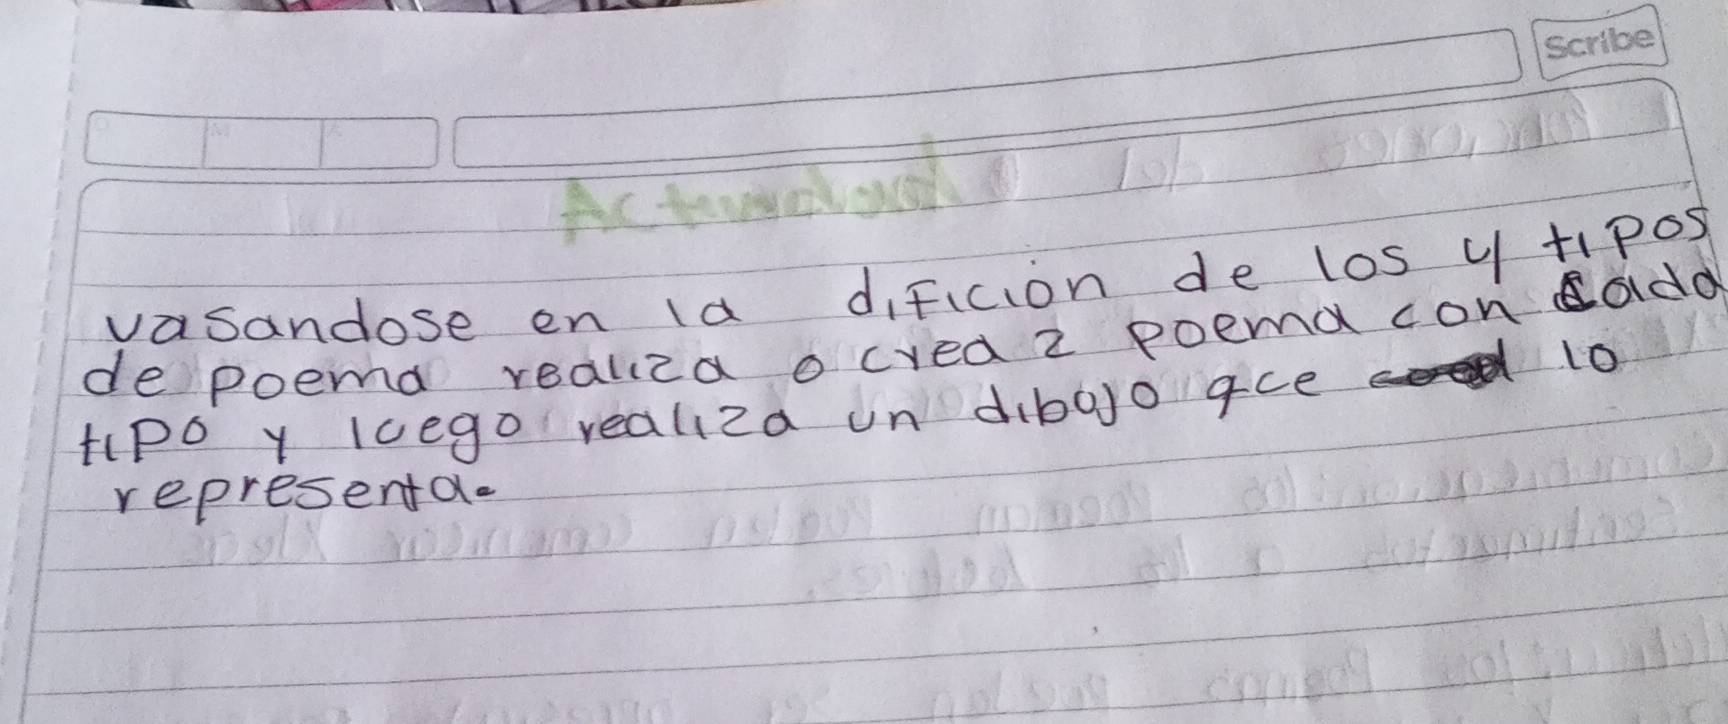 Scribe
Actividad
vasandose en la dificion de los 4 tipos
de poema realiza o crea 2 poema con cada
tipo y luego realiza un dibujo qce lo
representa.